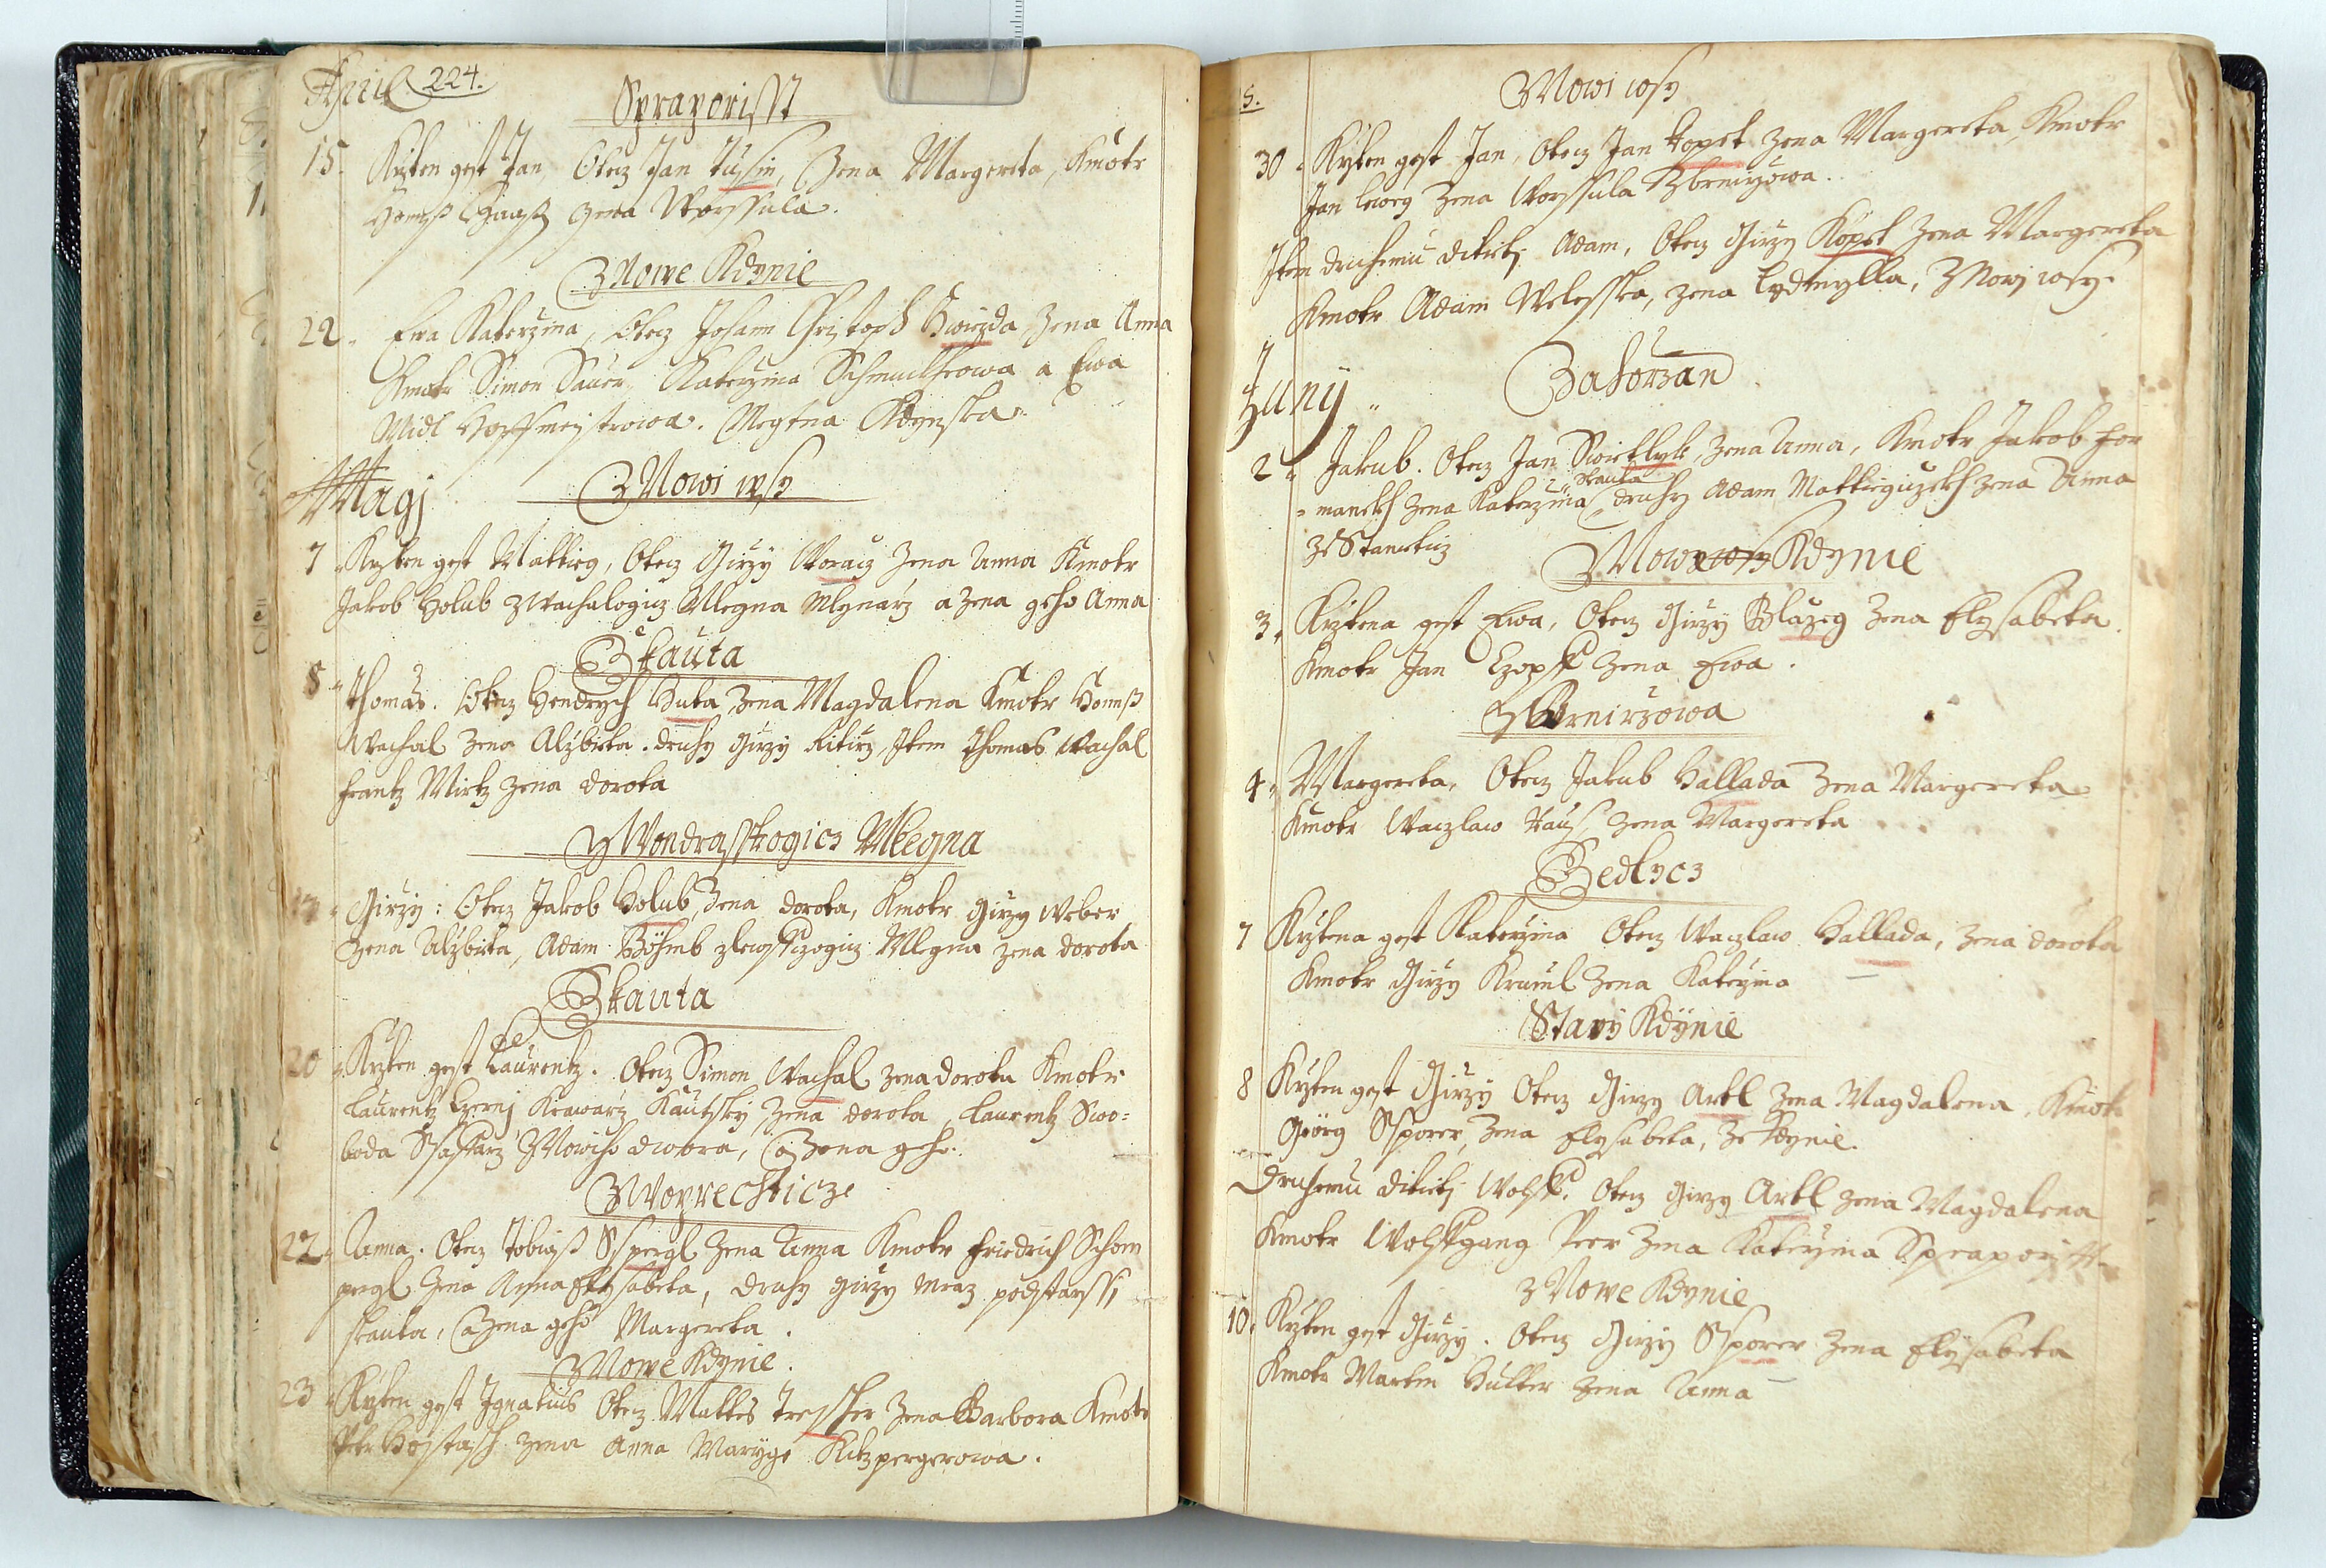 April 224.
Sprapořisst
15. Krzten gest Jan, Otecz Jan Tussin, Zena Margereta, Kmotr
Hannß Haaß zena Worssula.
Z Nowe Kdynie
22. Ewa Katerzina, Otecz Johann Christoph Hwiezda, Zena Anna
Kmotr Simon Sauer, Katerzina Schmucltrowa a Ewa
Midl Hoffmejstrowa. Megtna Kdynska.
Magj
Z Nowi wsy
7 Krzten gest Mattieg, Otecz Girzy Woracz zena Anna Kmotr
Jakob Holub z Wachalogicz Mlegna Mlynarz a zena geho Anna
Z Kauta
8 Thomas. Otecz Hendrych Huta, zena Magdalena Kmotr Hannß
Wachal zena Alzbieta. druhy Girzy Item Thomas Wachal
Frantz Mirtz zena dorota
Z Wondrasskogicz Mlegna
13 Girzy: Otecz Jakob Holub, Zena dorota, Kmotr Girzy Weber
Zena Alzbieta, Adam Böhmb Mlegna zena dorota
Z Kauta
20 Krzten gest Laurentz. Otecz Simon Wachal zena dorota Kmotr
Laurentz Czernj Krawarz Kautsky, Zena dorota, Laurentz Swo:
boda Ssaffarz Z Nowiho dwora, a Zena geho.
Z Woprechticze
22. Anna. Otecz Tobiaß Sspergl Zena Anna Kmotr Friedrich Schom
pergl Zena Anna Elysabeta, druhy Girzy Mraz podstarssi
skauta, a Zena geho Margereta.
Z Nowe Kdynie.
23 Krzten gest Ignatius Otecz Mattes Trescher Zena Barbora Kmotr
Petr Hostasch zena Anna Maryge Kitzpergerowa.
5.
Z Nowi wsy
30. Krzten gest Jan, Otecz Jan Kopet zena Margereta, Kmotr
Jan Zena Worssula Z brnirzowa.
Item druhemu ditieti Adam, Otecz Girzy Kopet zena Margereta
Kmotr Adam Welesska, zena Lydmylla, Z Nowj wsy.
Juny
Zahorzan
2. Jakub. Otecz Jan Swietlyk, zena Anna, Kmotr Jakob For
skauta
manek zena Katerzina druhy Adam zena Anna
z Stanieticz
Z Nowy wsy Kdynie
3. Krztena gest Ewa, Otecz Girzy Blazeg zena Elysabeta.
Kmotr Jan Czopff zena Ewa.
Z Brnirzowa
4. Margereta, Otecz Jakub Hallada zena Margereta
Kmotr Waczlaw Taus, zena Margereta
Z Sedlycz
7 Krztena gest Katerzina Otecz Waczlaw Hallada, zena dorota
Kmotr Girzy Kraml zena Katerzina
Stary Kdynie
8 Krzten gest Girzy Otecz Girzy Artl zena Magdalena, Kmotr
Georg Ssporer, zena Elysabeta, ze Kdynie.
Druhemu ditieti Wolff. Otecz Girzy Artl zena Magdalena
Kmotr Wolffgang Peer zena Katerzina Spraporisst.
Z Nowe Kdynie
10. Krzten gest Girzy. Otecz Girzy Ssporer zena Elysabeta
Kmotr Martin Hutter zena Anna